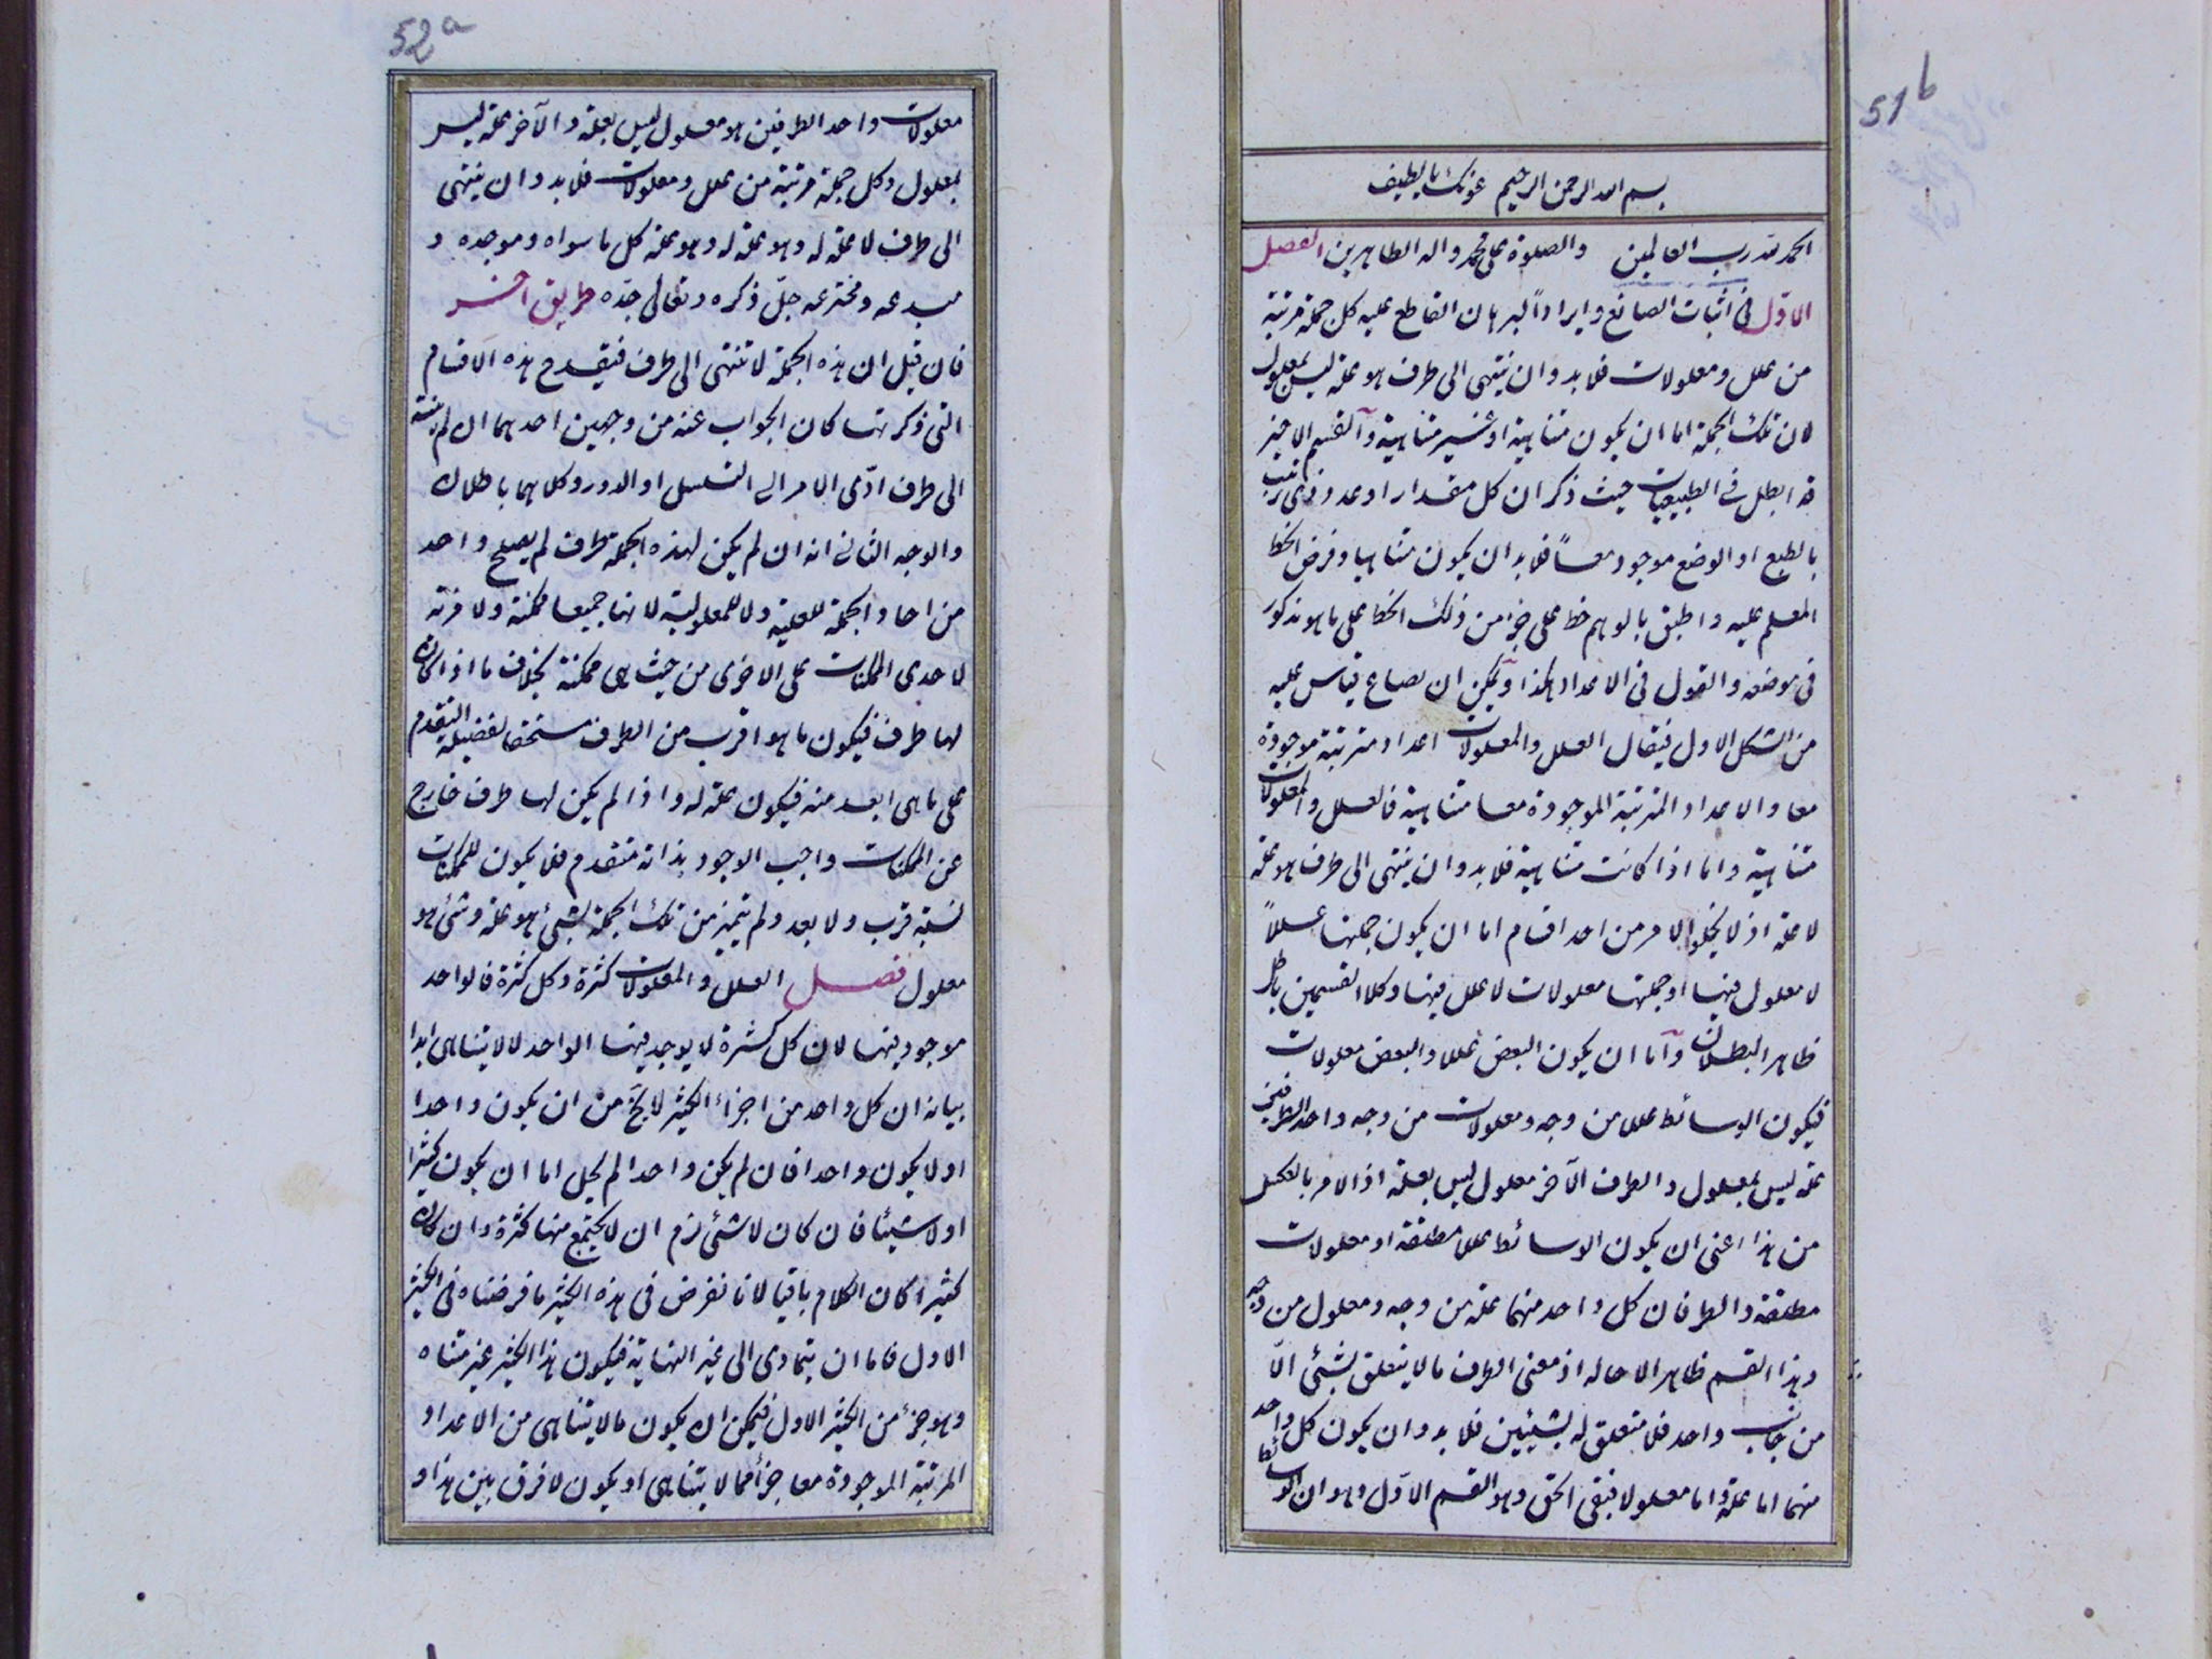 51b
بسم الله الرحمن الرحيم عونك يا لطيف
الحمد لله رب العالمين والصلوة على محمد واله الطاهرين الفصل
الاول فى اثبات الصانع وايراد البرهان القاطع عليه كل جملة مرتبة
من علل ومعلولات فلا بد وان ينتهى الى طرف هو علة ليس بمعلول
لان تلك الجملة اما ان يكون متناهية او غير متناهية وآلقسم الاخير
قد ابطل فى الطبيعيات حيث ذكر ان كل مقدار او عدد ذى ترتيب
بالطبع او الوضع موجود معاً فلا بد ان يكون متناهيا وفرض الخط
المعلم عليه واطبق بالوهم خط على جزء من ذلك الخط على ما هو مذكور
فى موضعه والقول فى الاعداد هكذا وآيمكن ان يصاغ قياس عليه
من الشكل الاول فيقال العلل والمعلولات اعداد مترتبة موجودة
معا والاعداد المترتبة الموجودة معا متناهية فالعلل والمعلولات
متناهية واما اذا كانت متناهية فلا بد وان ينتهى الى طرف هو علة
لا علة اذ لا يخلوا الامر من احد اقسام اما ان يكون جملتها عللاً
لا معلول فيها او جملتها معلولات لا علل فيها وكلا القسمين باطل
ظاهر البطلان وآما ان يكون البعض عللا والبعض معلولات
فيكون الوسائط عللا من وجه ومعلولات من وجه واحد الطرفين
علة ليس بمعلول والطرف الآخر معلول ليس بعلة اذ الامر بالعكس
من هذا اعنى ان يكون الوسائط عللا مطلقة او معلولات
مطلقة والطرفان كل واحد منهما علة من وجه ومعلول من وجه
وهذا القسم ظاهر الاحاله اذ معنى الطرف ما لا يتعلق بشئ الّا
من جانب واحد فلا متعلق له بشيئين فلا بد وان يكون كل واحد
منهما اما علة واما معلولا فبقى الحق وهو القسم الآول وهو ان الوسائط
52a
معلولات واحد الطرفين هو معلول ليس بعلة والآخر علة ليس
بمعلول وكل جملة مرتبة من علل ومعلولات فلا بد وان ينتهى
الى طرف لا علة له وهو علة له وهو علة كل ما سواه وموجده و
مبدعه ومخترعه جلّ ذكره وتعالى جدّه طريق اخر
فان قيل ان هذه الجملة لا تنتهى الى طرف فيقدح هذه الاقسام
التى ذكرتها كان الجواب عنه من وجهين احدهما ان لم ينته
الى طرف ادّى الامر الى التسلسل او الدور وكلاهما باطلان
والوجه الثانى انه ان لم يكن لهذه الجملة طرف لم يصلح واحد
من احاد الجملة للعلية ولا للمعلولية لانها جميعا ممكنة ولا مزية
لاحدى الممكنات على الاخرى من حيث هى ممكنة بخلاف ما اذا كان
لها طرف فيكون ما هو اقرب من الطرف مستحقا لفضيلة التقدم
على ما هى ابعد منه فيكون علة له واذا لم يكن لها طرف خارج
عن الممكنات واجب الوجود بذاته متقدم فلا يكون للممكنات
نسبة قرب ولا بعد ولم يتميز من تلك الجملة شئ هو علة وشئ هو
معلول فصل العلل والمعلولات كثرة وكل كثرة فالواحد
موجود فيها لان كل كثرة لا يوجد فيها الواحد لا لا يتناهى ابدا
بيانه ان كل واحد من اجزاء الكثير لا يخ من ان يكون واحدا
او لا يكون واحدا فان لم يكن واحدا لم يخل اما ان يكون كثيرا
او لا شيئا فان كان لا شئ لزم ان لا يجتمع منها كثرة وان كان
كثيرا كان الكلام باقيا لانا نفرض فى هذه الكثير ما فرضناه فى الكثير
الاول فاما ان يتمادى الى غير النهاية فيكون هذا الكثير غير متناه
وهو جزء من الكثير الاول فيمكن ان يكون ما لا يتناهى من الاعداد
المرتبة الموجودة معا جزأ مما لا يتناهى او يكون لا فرق بين هذا و